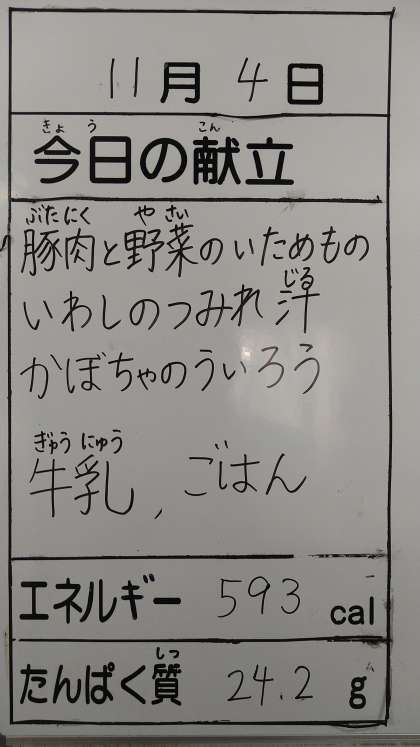 11月4日
きょう こん
今日の献立
ぶたにく やさい
豚肉と野菜のいためもの
じる
いわしのつみれ汁
かぼちゃのういろう
ぎゅうにゅう
牛乳、ごはん
エネルギー 593 cal
しつ
たんぱく質 24.2 g